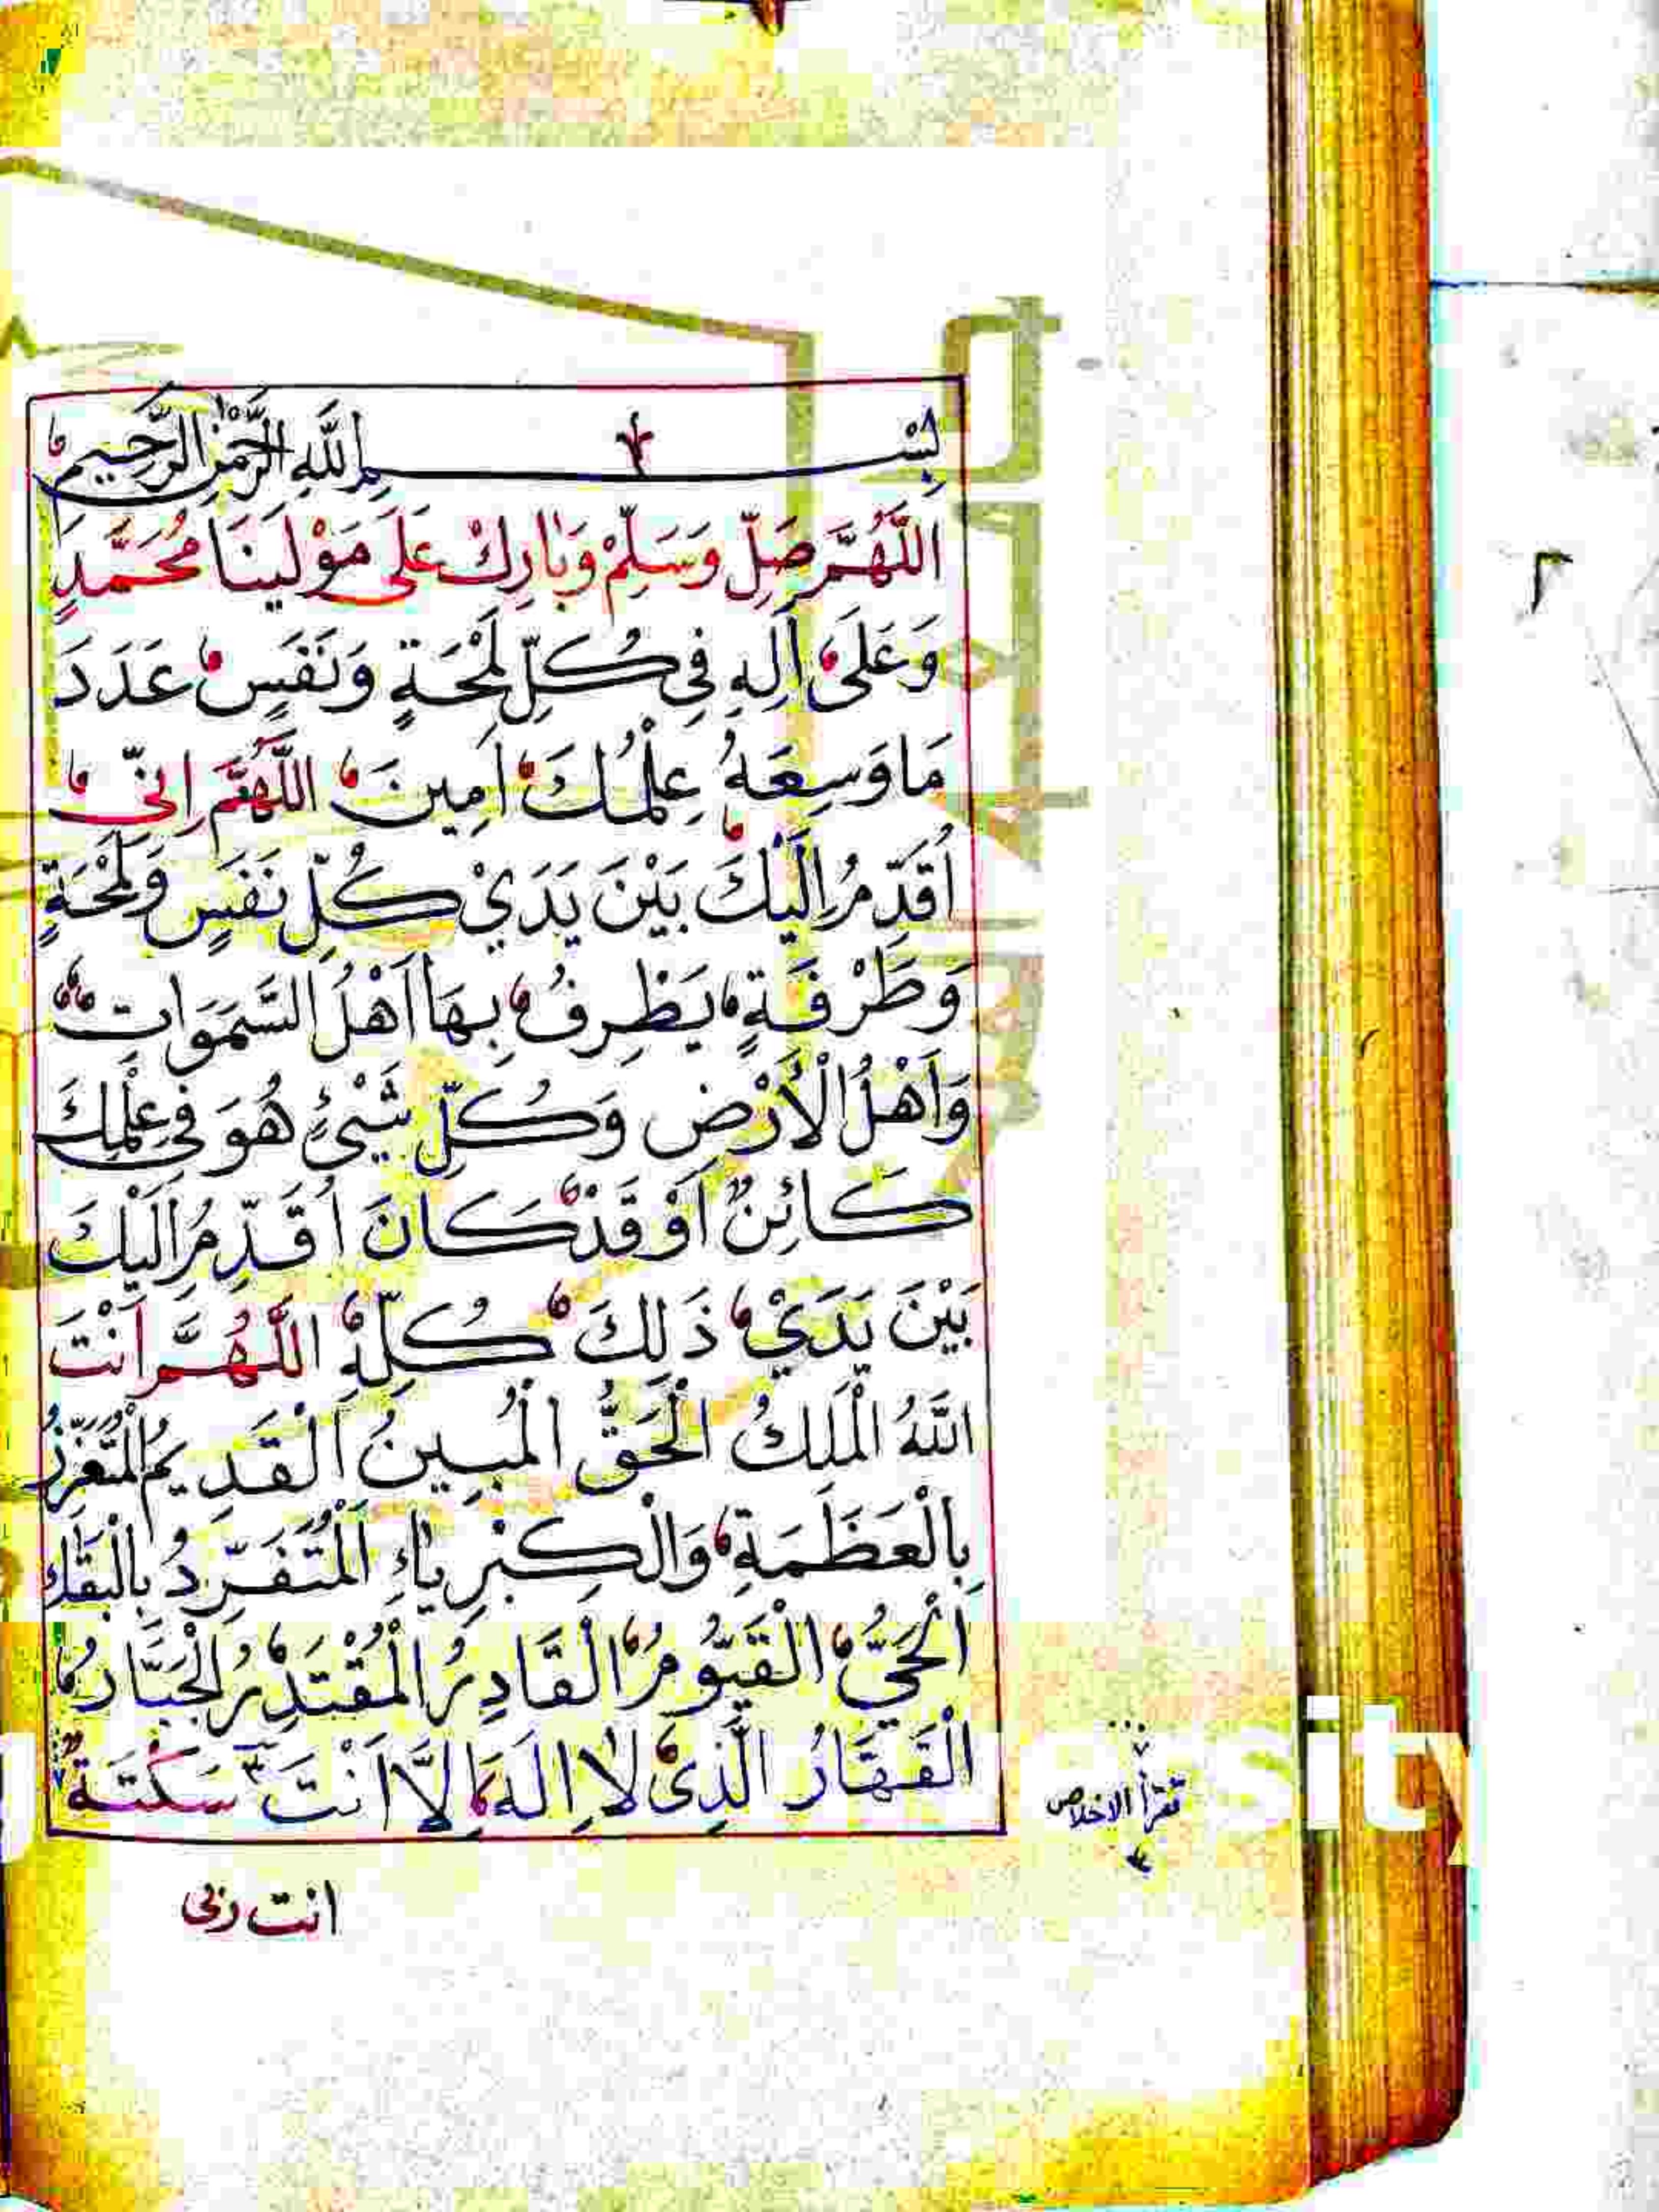 بِسْمِ اللّٰهِ الرَّحْمٰنِ الرَّحِيمِ
اَللّٰهُمَّ صَلِّ وَسَلِّمْ وَبَارِكْ عَلَى مَوْلَيْنَا مُحَمَّدٍ
وَعَلَى اَلِهِ فِي كُلِّ لَمْحَةٍ وَنَفَسٍ عَدَدَ
مَا وَسِعَهُ عِلْمُكَ اَمِينَ اللّٰهُمَّ اِنِّي
اُقَدِّمُ اِلَيْكَ بَيْنَ يَدَيْ كُلِّ نَفَسٍ وَلَمْحَةٍ
وَطَرْفَةٍ يَظْرِفُ بِهَا اَهْلُ السَّمَوَاتِ
وَاَهْلُ الْاَرْضِ وَكُلِّ شَيْئٍ هُوَ فِي عِلْمِكَ
كَائِنٌ اَوْ قَدْ كَانَ اُقَدِّمُ اِلَيْكَ
بَيْنَ يَدَيْ ذَلِكَ كُلِّهِ اللّٰهُمَّ اَنْتَ
اللّٰهُ الْمَلِكُ الْحَقُّ الْمُبِينُ الْقَدِيمُ الْمُتَعَزِّزُ
بِالْعَظَمَةِ وَالْكِبْرِيَاءِ اَلْمُتَفَرِّدُ بِالْبَقَاءِ
اَلْحَيُّ الْقَيُّومُ الْقَادِرُ الْمُقْتَدِرُ الْجَبَّارُ
الْقَهَّارُ الَّذِي لَا اِلَهَ اِلَّا اَنْتَ سَكْتَةٌ
تقرأ الاخلاص
انت ربى
sity